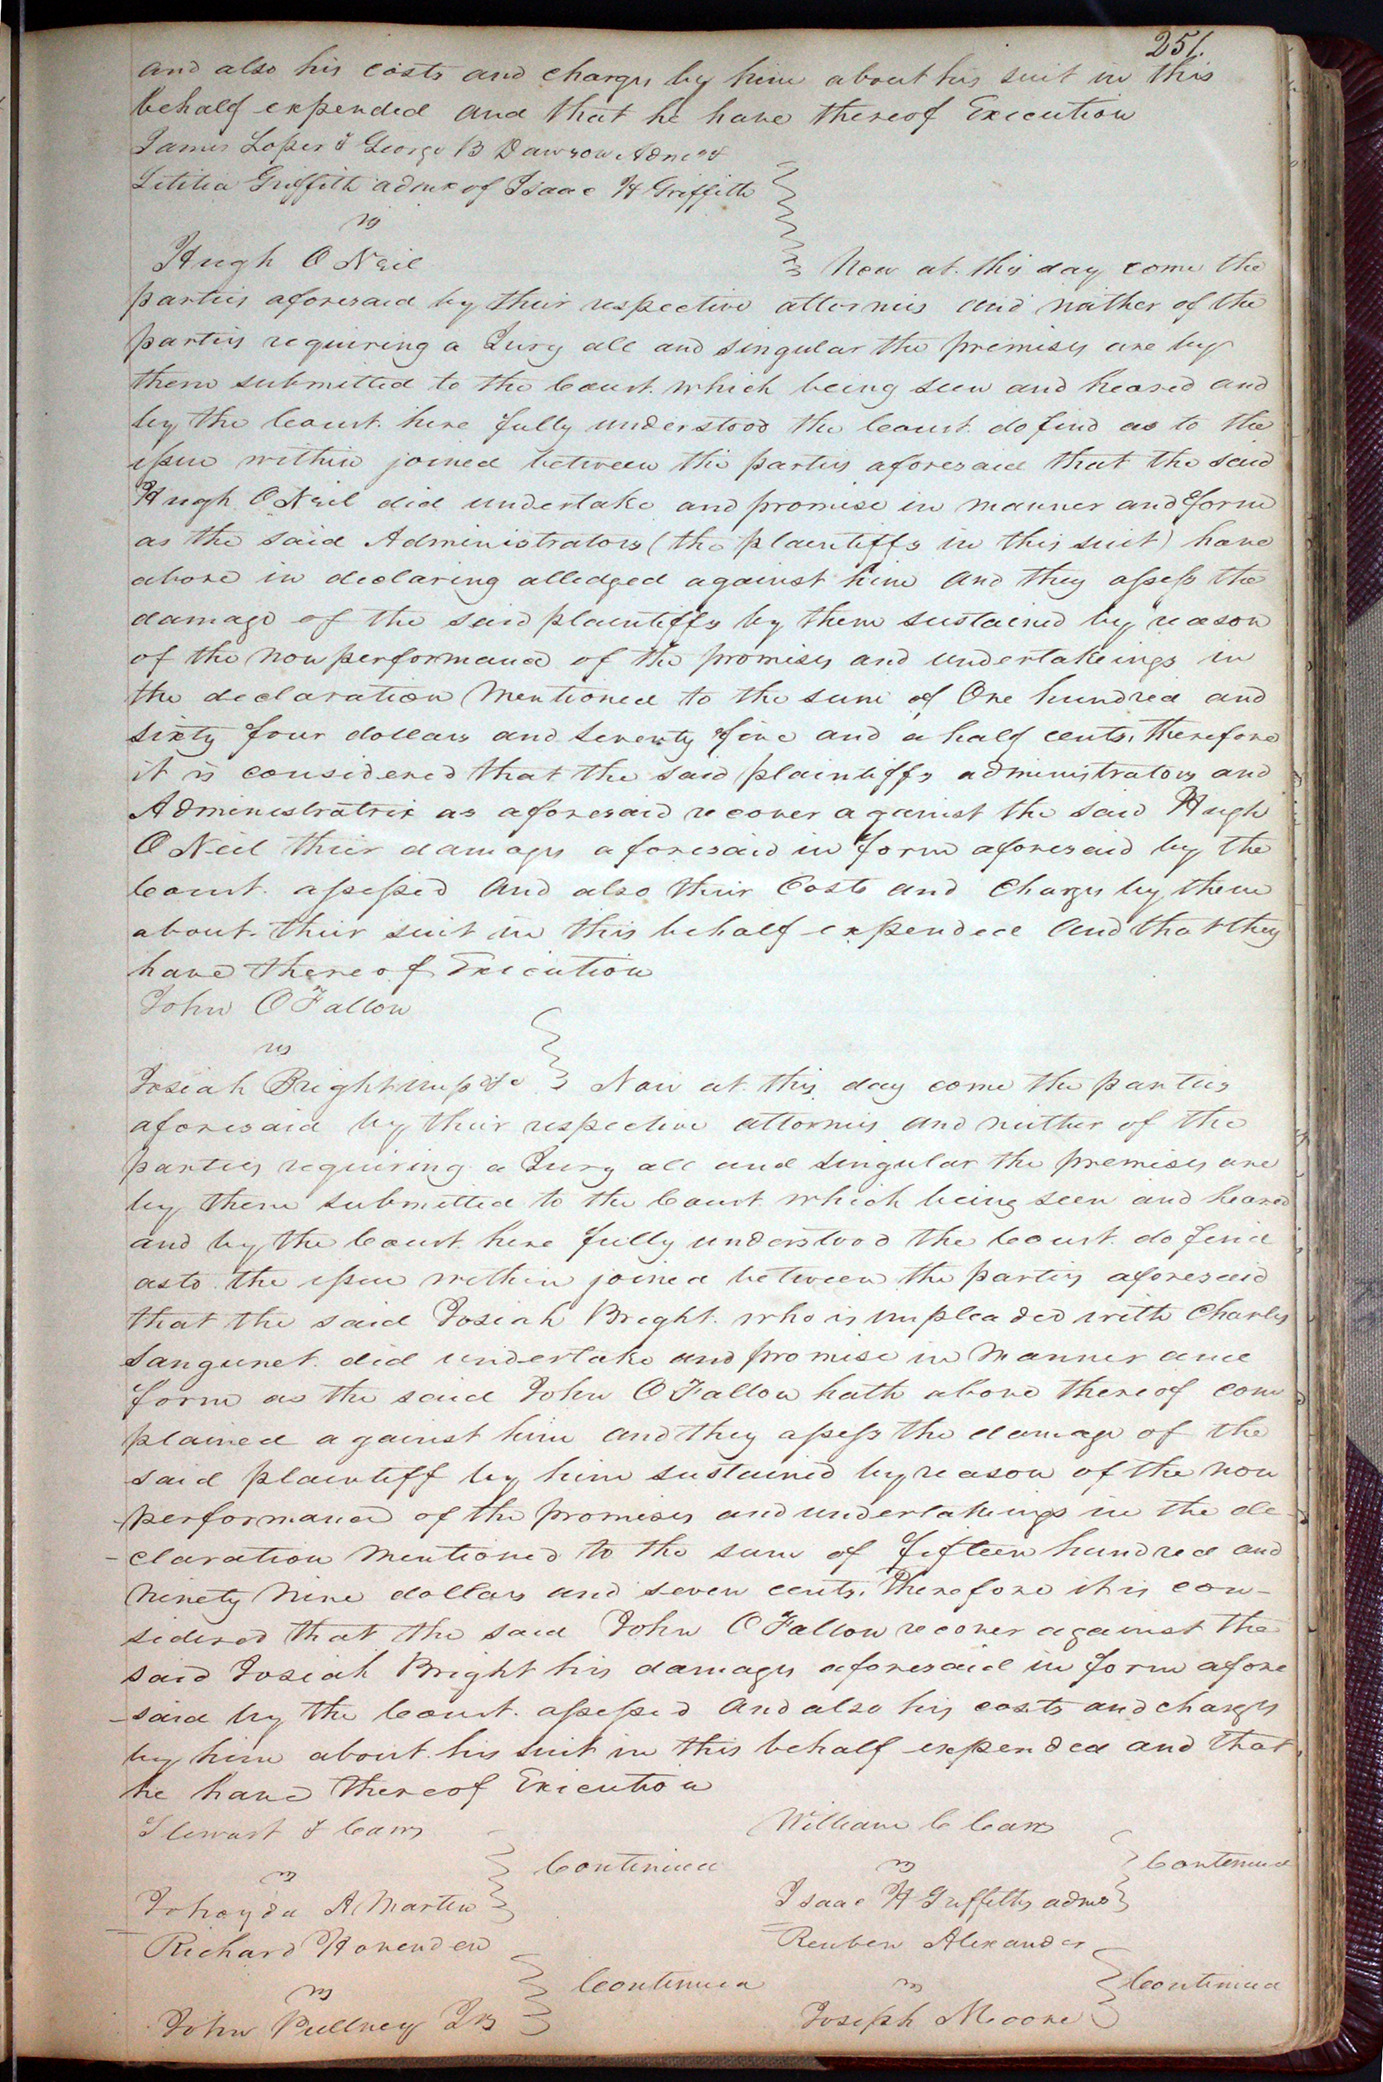 251.
and also his costs and charges by him about his suit in this
behalf expended and that he have thereof Execution
James Loper & George B Dawson Admrs &
Letitia Griffith admx of Isaac H Griffith
vs
Hugh O Neil Now at this day come the
parties aforesaid by their respective attornies and neither of the
parties requiring a Jury all and singular the premises are by
them submitted to the Court which being seen and heared and
by the Court here fully understood the Court do find as to the
issue within joined between the parties aforesaid that the said
Hugh O Neil did undertake and promise in manner and form
as the said Administrators (the plaintiffs in this suit) have
above in declaring alledged against him and they assess the
damage of the said plaintiffs by them sustained by reason
of the non performance of the promises and undertakeings in
the declaration mentioned to the sum of One hundred and
sixty four dollars and seventy five and a half cents, therefore
it is considered that the said plaintiffs administrators and
Administratrix as aforesaid recover against the said Hugh
O Neil their damages aforesaid in form aforesaid by the
Court assessed and also their Costs and Charges by them
about their suit in this behalf expended and that they
have thereof Execution
John O Fallon
vs
Josiah Bright imp &c Now at this day come the parties
aforesaid by their respective attornies and neither of the
parties requiring a Jury all and singular the premises are
by them submitted to the Court which being seen and heared
and by the Court here fully understood the Court do find
as to the issue within joined between the parties aforesaid
that the said Josiah Bright who is impleaded with Charles
Sanguinet did undertake and promise in manner and
form as the said John O Fallon hath above thereof com
plained against him and they assess the damage of the
said plaintiff by him sustained by reason of the non
-performance of the promises and undertakings in the de
-claration mentioned to the sum of fifteen hundred and
ninety nine dollars and seven cents, Therefore it is con-
sidered that the said John O Fallon recover against the
said Josiah Bright his damages aforesaid in form afore
-said by the Court assessed and also his costs and charges
by him about his suit in this behalf expended and that
he have thereof Execution
Stewart & Carrs
vs Continued
A Martin
William C Carr
vs Continued
Isaac H Griffiths admrs
Richard Hovenden
vs Continued
John Jr
Reuben Alexander
vs Continued
Joseph Moore